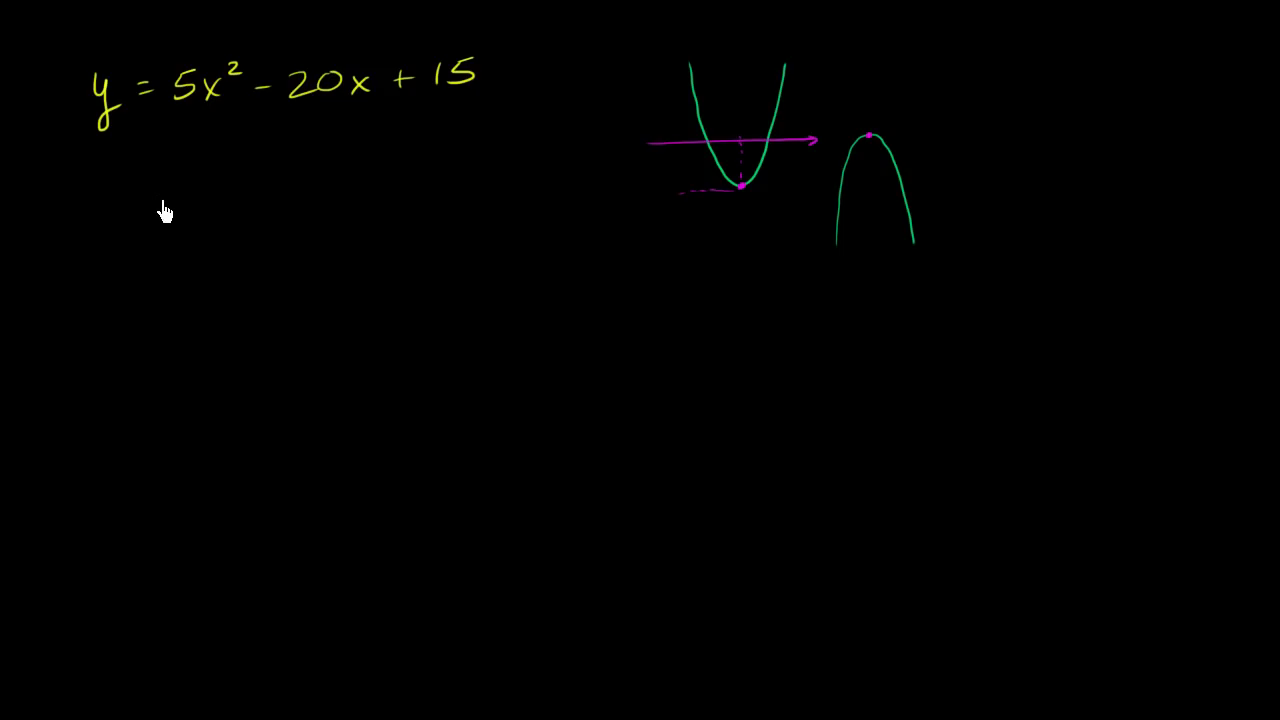 y = 5x² - 20x + 15